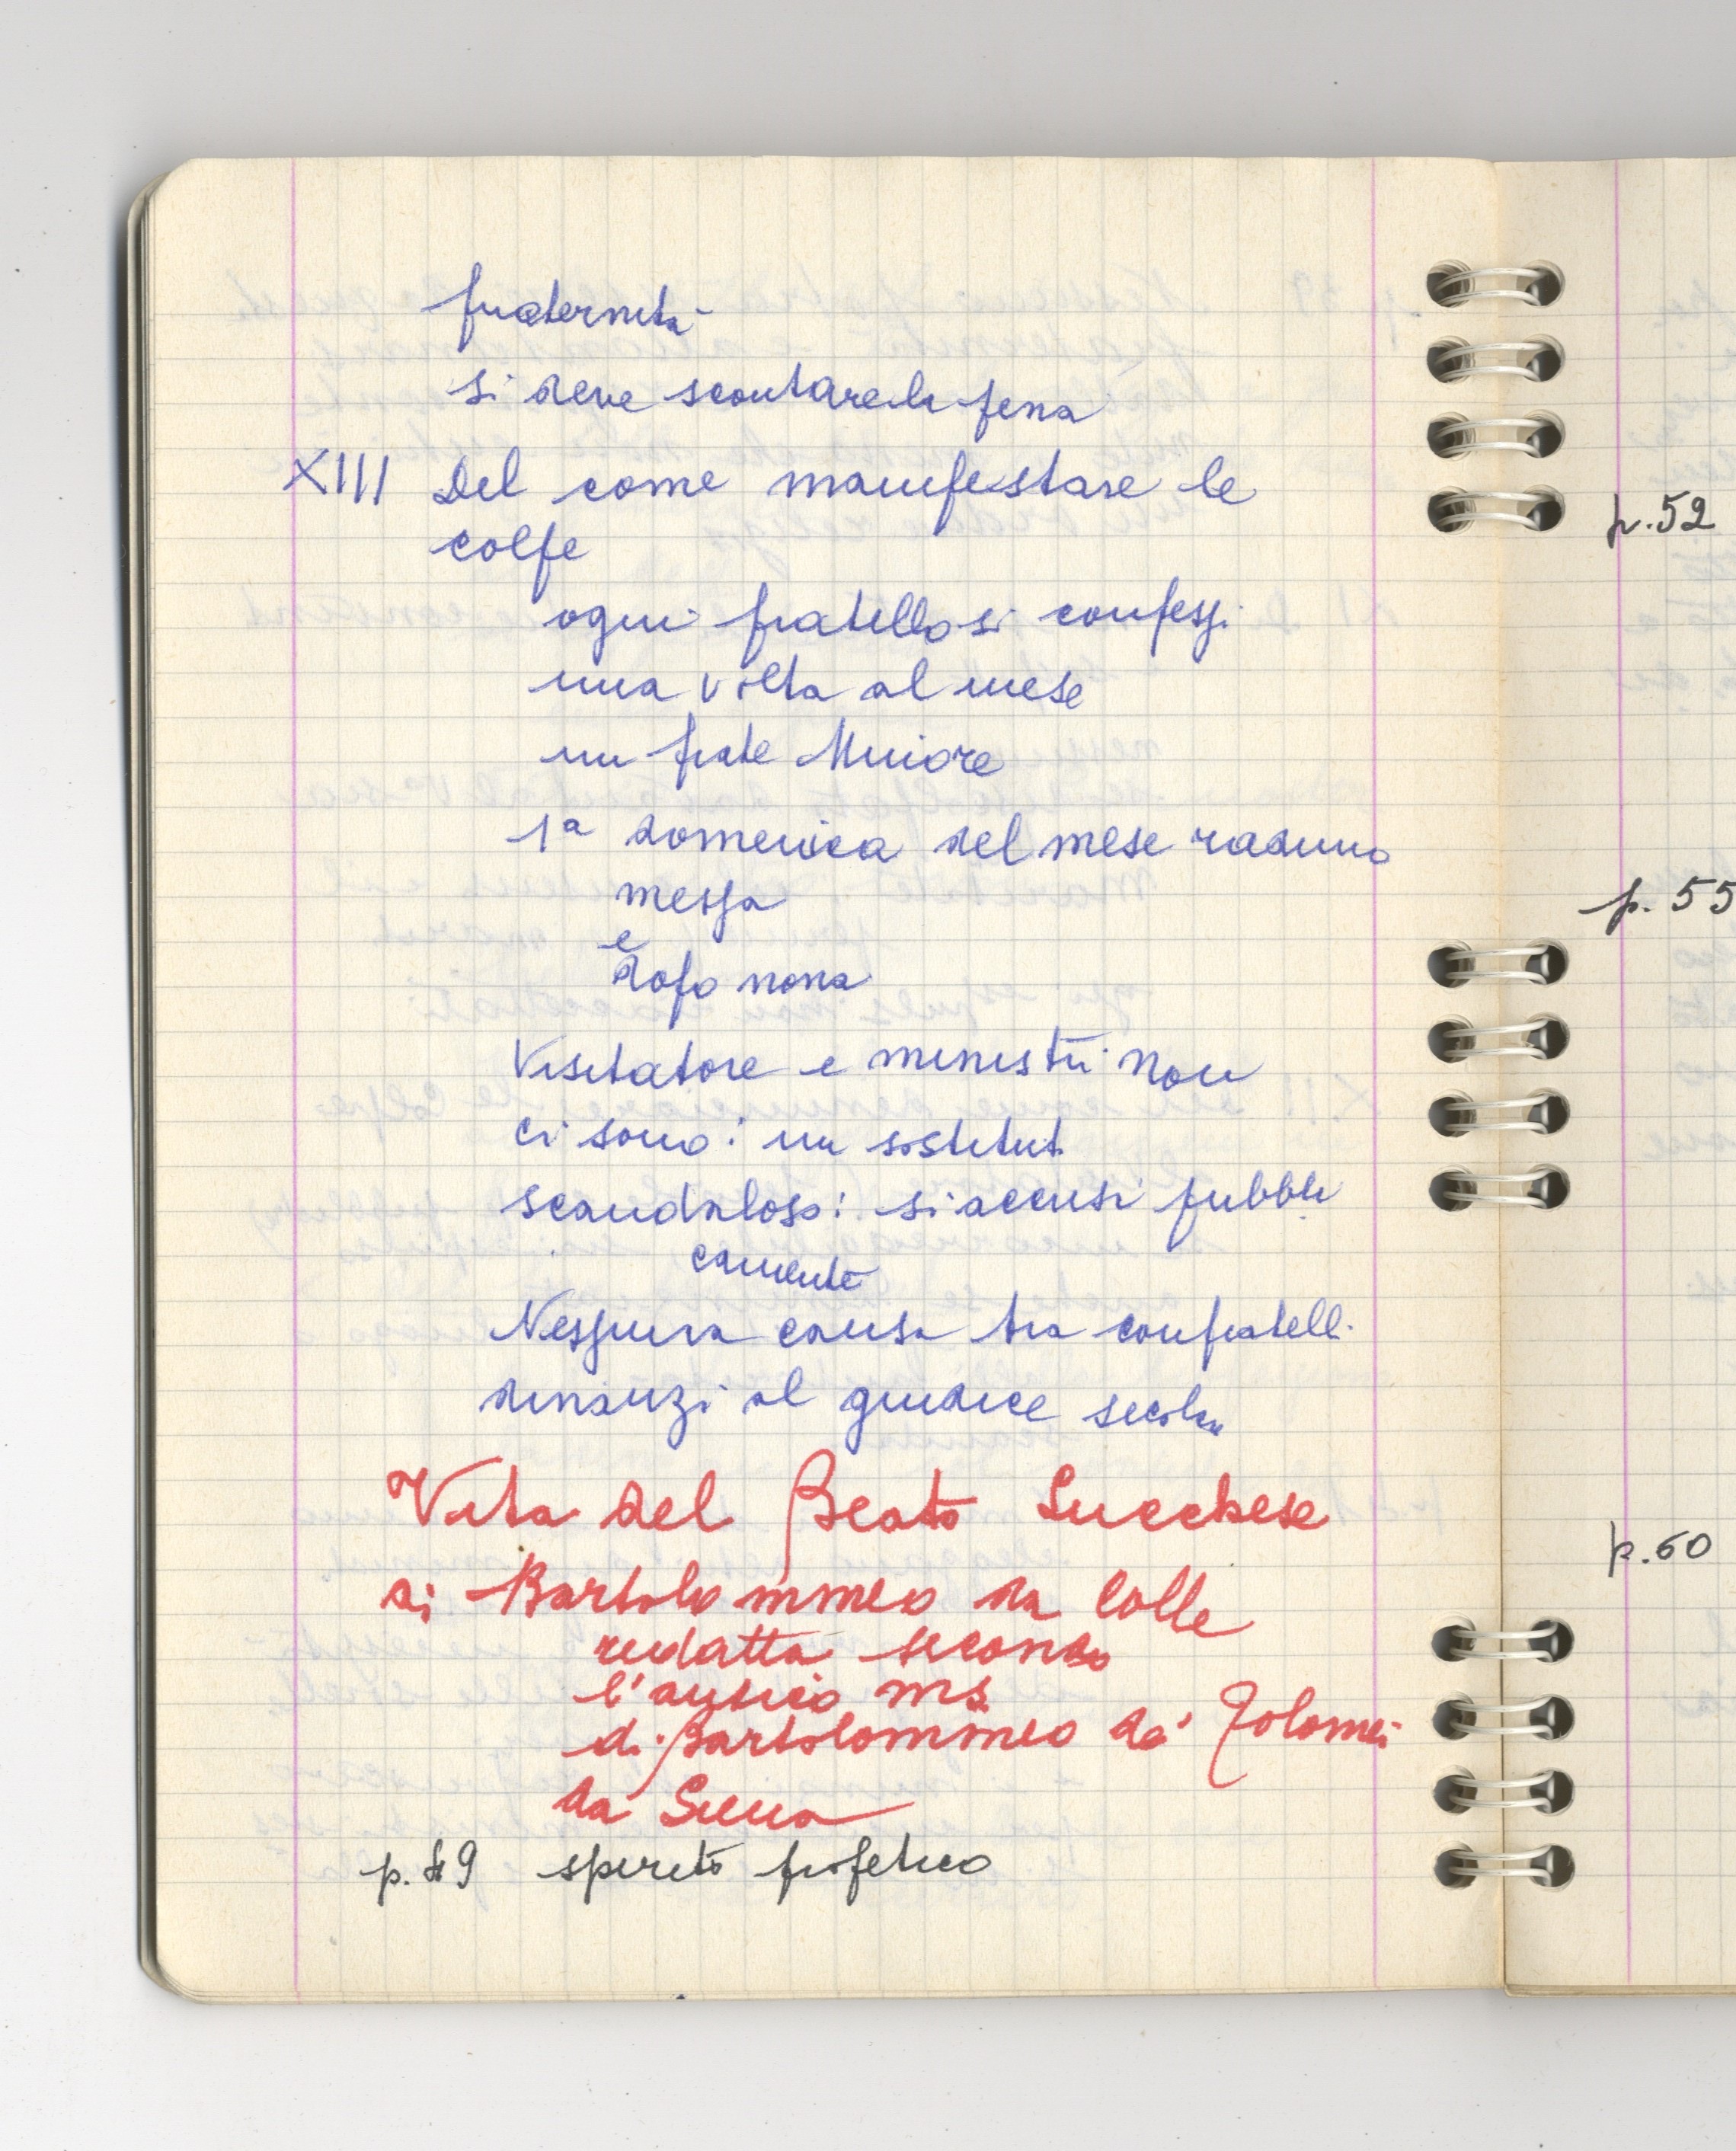 fraternità
si deve scontare la pena
XIII Del come manifestare le
colpe
ogni fratello si confessi
una volta al mese
un frate Minore
1a domenica del mese raduno
messa
e
dopo nona
Visitatore e ministri non
ci sono: un sostitut
scandaloso: si accusi pubbli
camente
Nessuna causa tra confratelli
dinanzi al giudice secolar
Vita del Beato Lucchese
di Bartolommeo da Colle
redatta secondo
l'antico ms
di Bartolommeo de' Tolomei
da Siena
p. 49 spirito profetico
p.52
p. 55
p.60